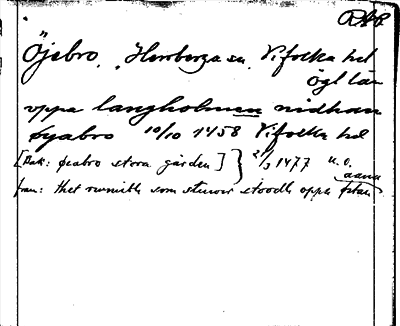 RAP
Öjebro, Herrberga sn. Vifolka hd
ögl län
vppa langholmen nidhan
öyabro 10/10 1458 Vifolka hd
[Bak: øeabro stora gården] } 21/3 1477 u.o.
fran: thet som stenar stoodh oppa